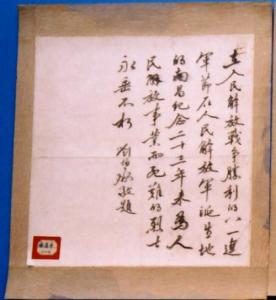 在人民解放战争胜利的八一建
军节在人民解放军诞生地
的南昌纪念二十三年来为人
民解放事业而死难的烈士
永垂不朽
刘伯承敬题